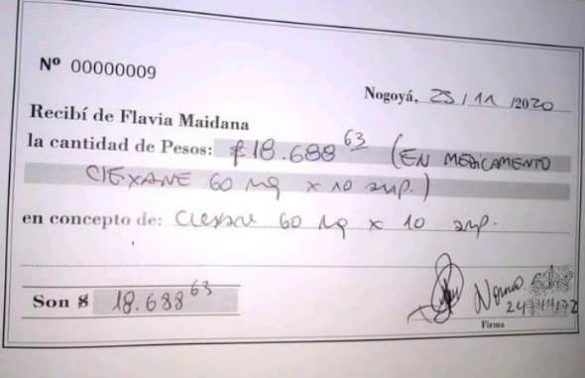 Nº 00000009
Nogoyá, 23/11/2020
Recibí de Flavia Maidana
la cantidad de Pesos: $18.688 63 (EN MEDICAMENTO
CLEXANE 60 mg x 10 amp.)
en concepto de: Clexane 60 mg x 10 amp.
Son $ 18.688 63
Norma
Firma